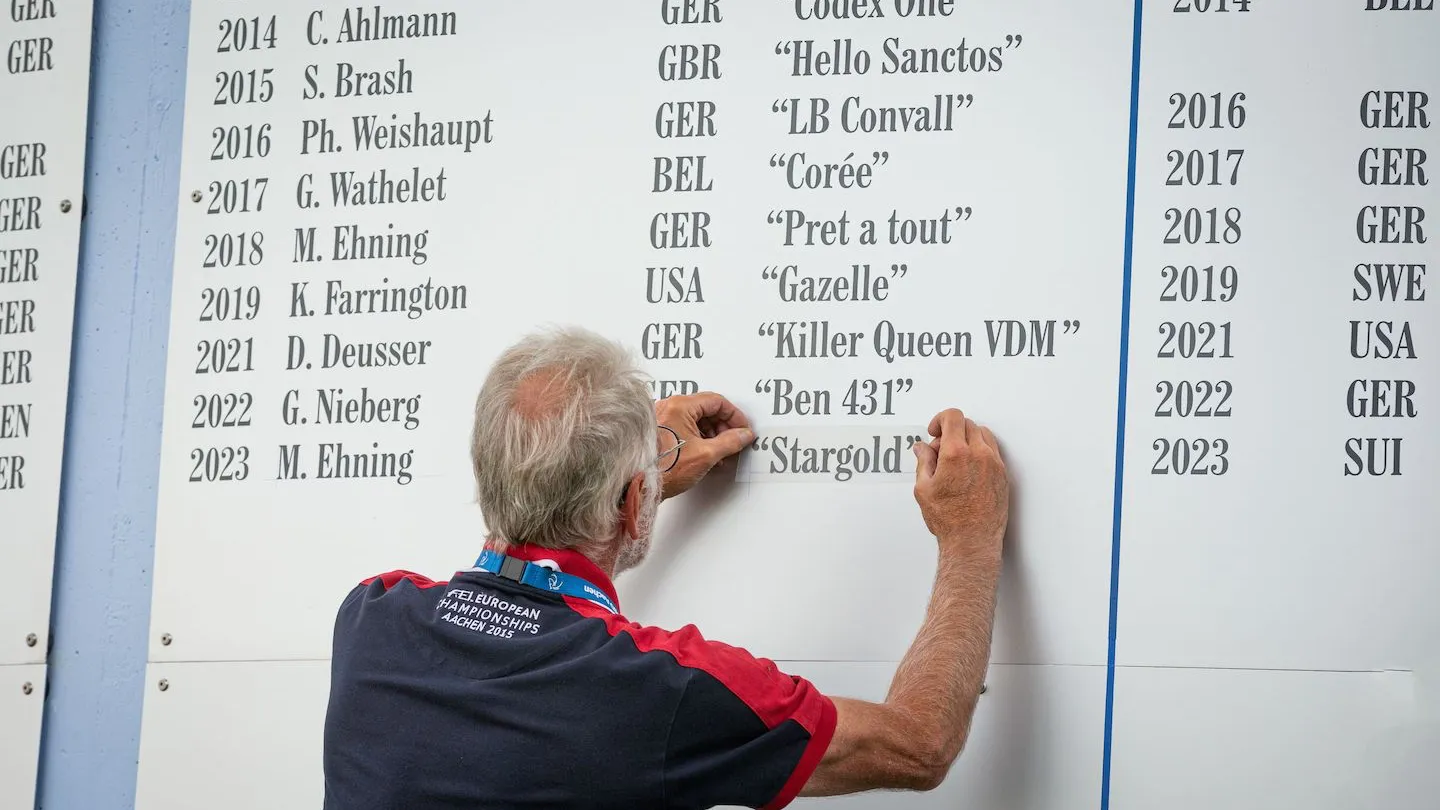 GER
GER
GER
GER
GER
GER
ER
EN
ER
2014 C. Ahlmann GER “Codex One”
2015 S. Brash GBR “Hello Sanctos”
2016 Ph. Weishaupt GER “LB Convall”
2017 G. Wathelet BEL “Corée”
2018 M. Ehning GER “Pret a tout”
2019 K. Farrington USA “Gazelle”
2021 D. Deusser GER “Killer Queen VDM”
2022 G. Nieberg GER “Ben 431”
2023 M. Ehning “Stargold”
2014 BEL
2016 GER
2017 GER
2018 GER
2019 SWE
2021 USA
2022 GER
2023 SUI
FEI EUROPEAN
CHAMPIONSHIPS
AACHEN 2015
Aachen